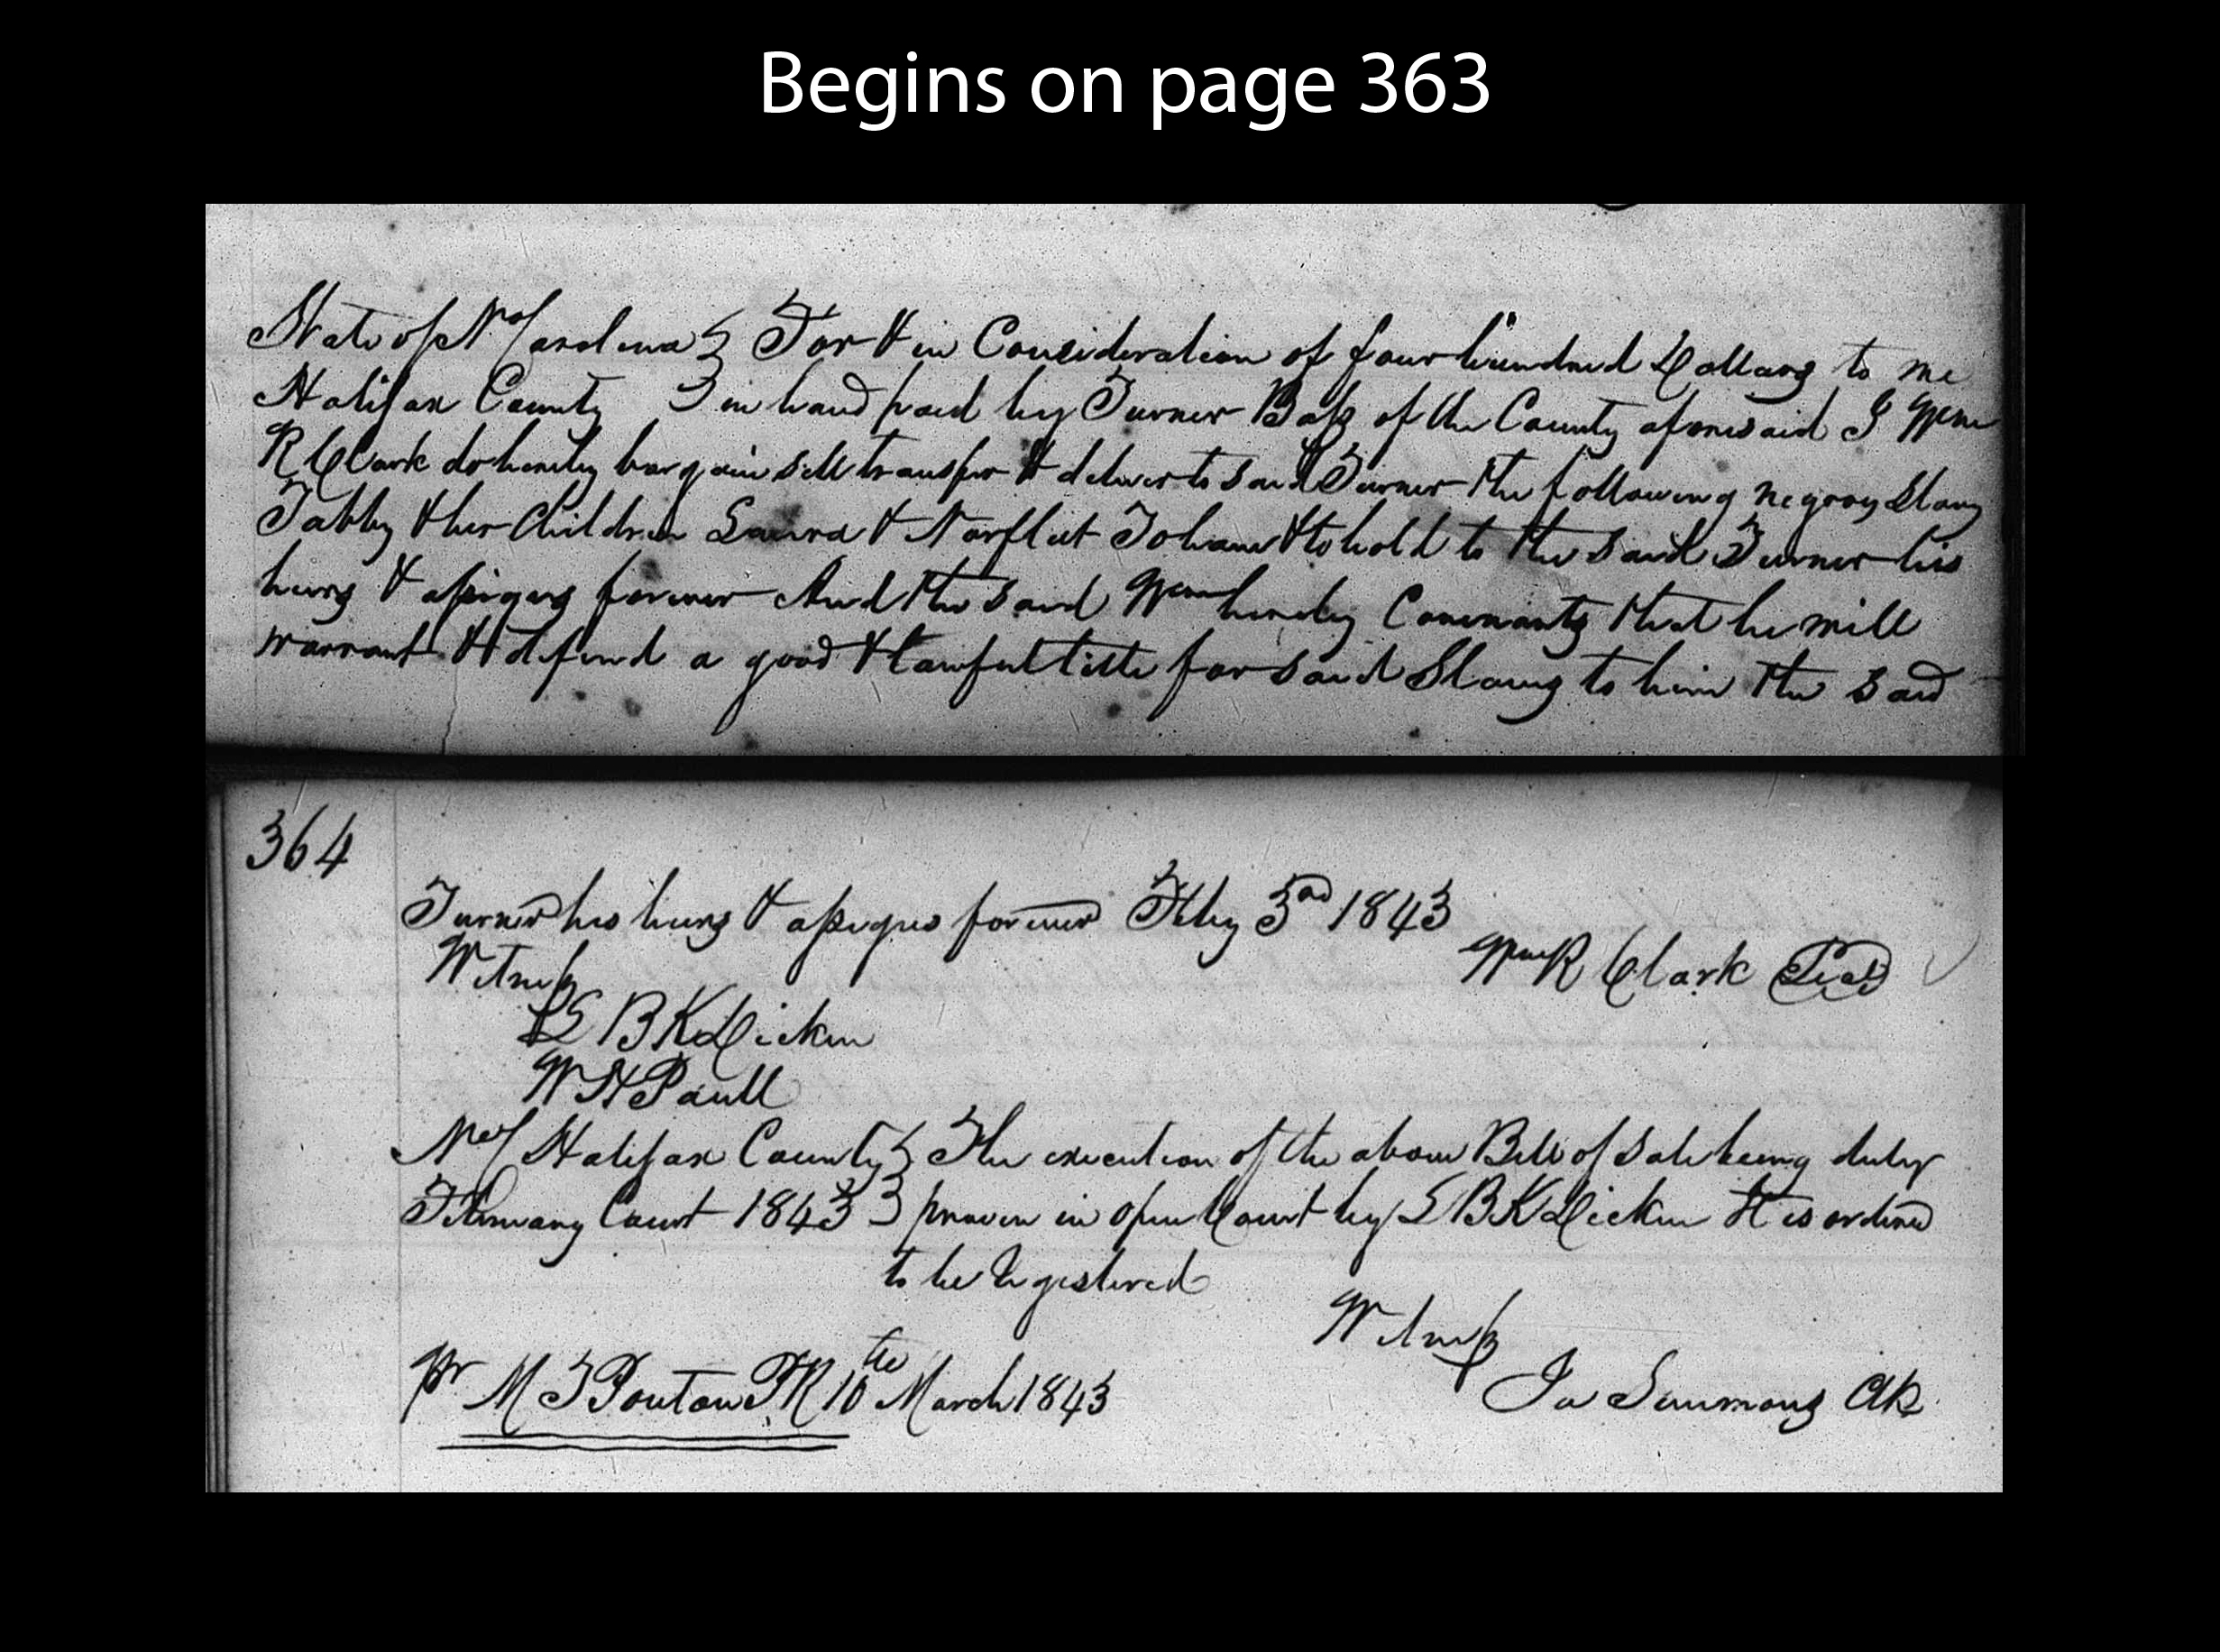 Begins on page 363
State of No Carolina } For & in Consideration of four hundred Dollars to me
Halifax County } in hand paid by Turner Bass of the County aforesaid I Wm
R Clark do hereby bargain sell transfer & deliver to said Turner the following negroes Slaves
Tabby & her Children Laura & Norfleet To have & to hold to the said Turner his
heirs & assigns forever And the said Wm hereby Covenants that he will
warrant & defend a good & lawful title for said Slaves to him the said
364
Turner his heirs & assigns forever Feby 3rd 1843
Wm R Clark Seal
Witness
L B K Dicken
W H Paull
No C Halifax County } The execution of the above Bill of Sale being duly
February Court 1843 } proven in open Court by L B K Dicken It is ordered
to be Registered
Witness
pr M T Ponton P.R 10th March 1843
Jo Simmons Clk